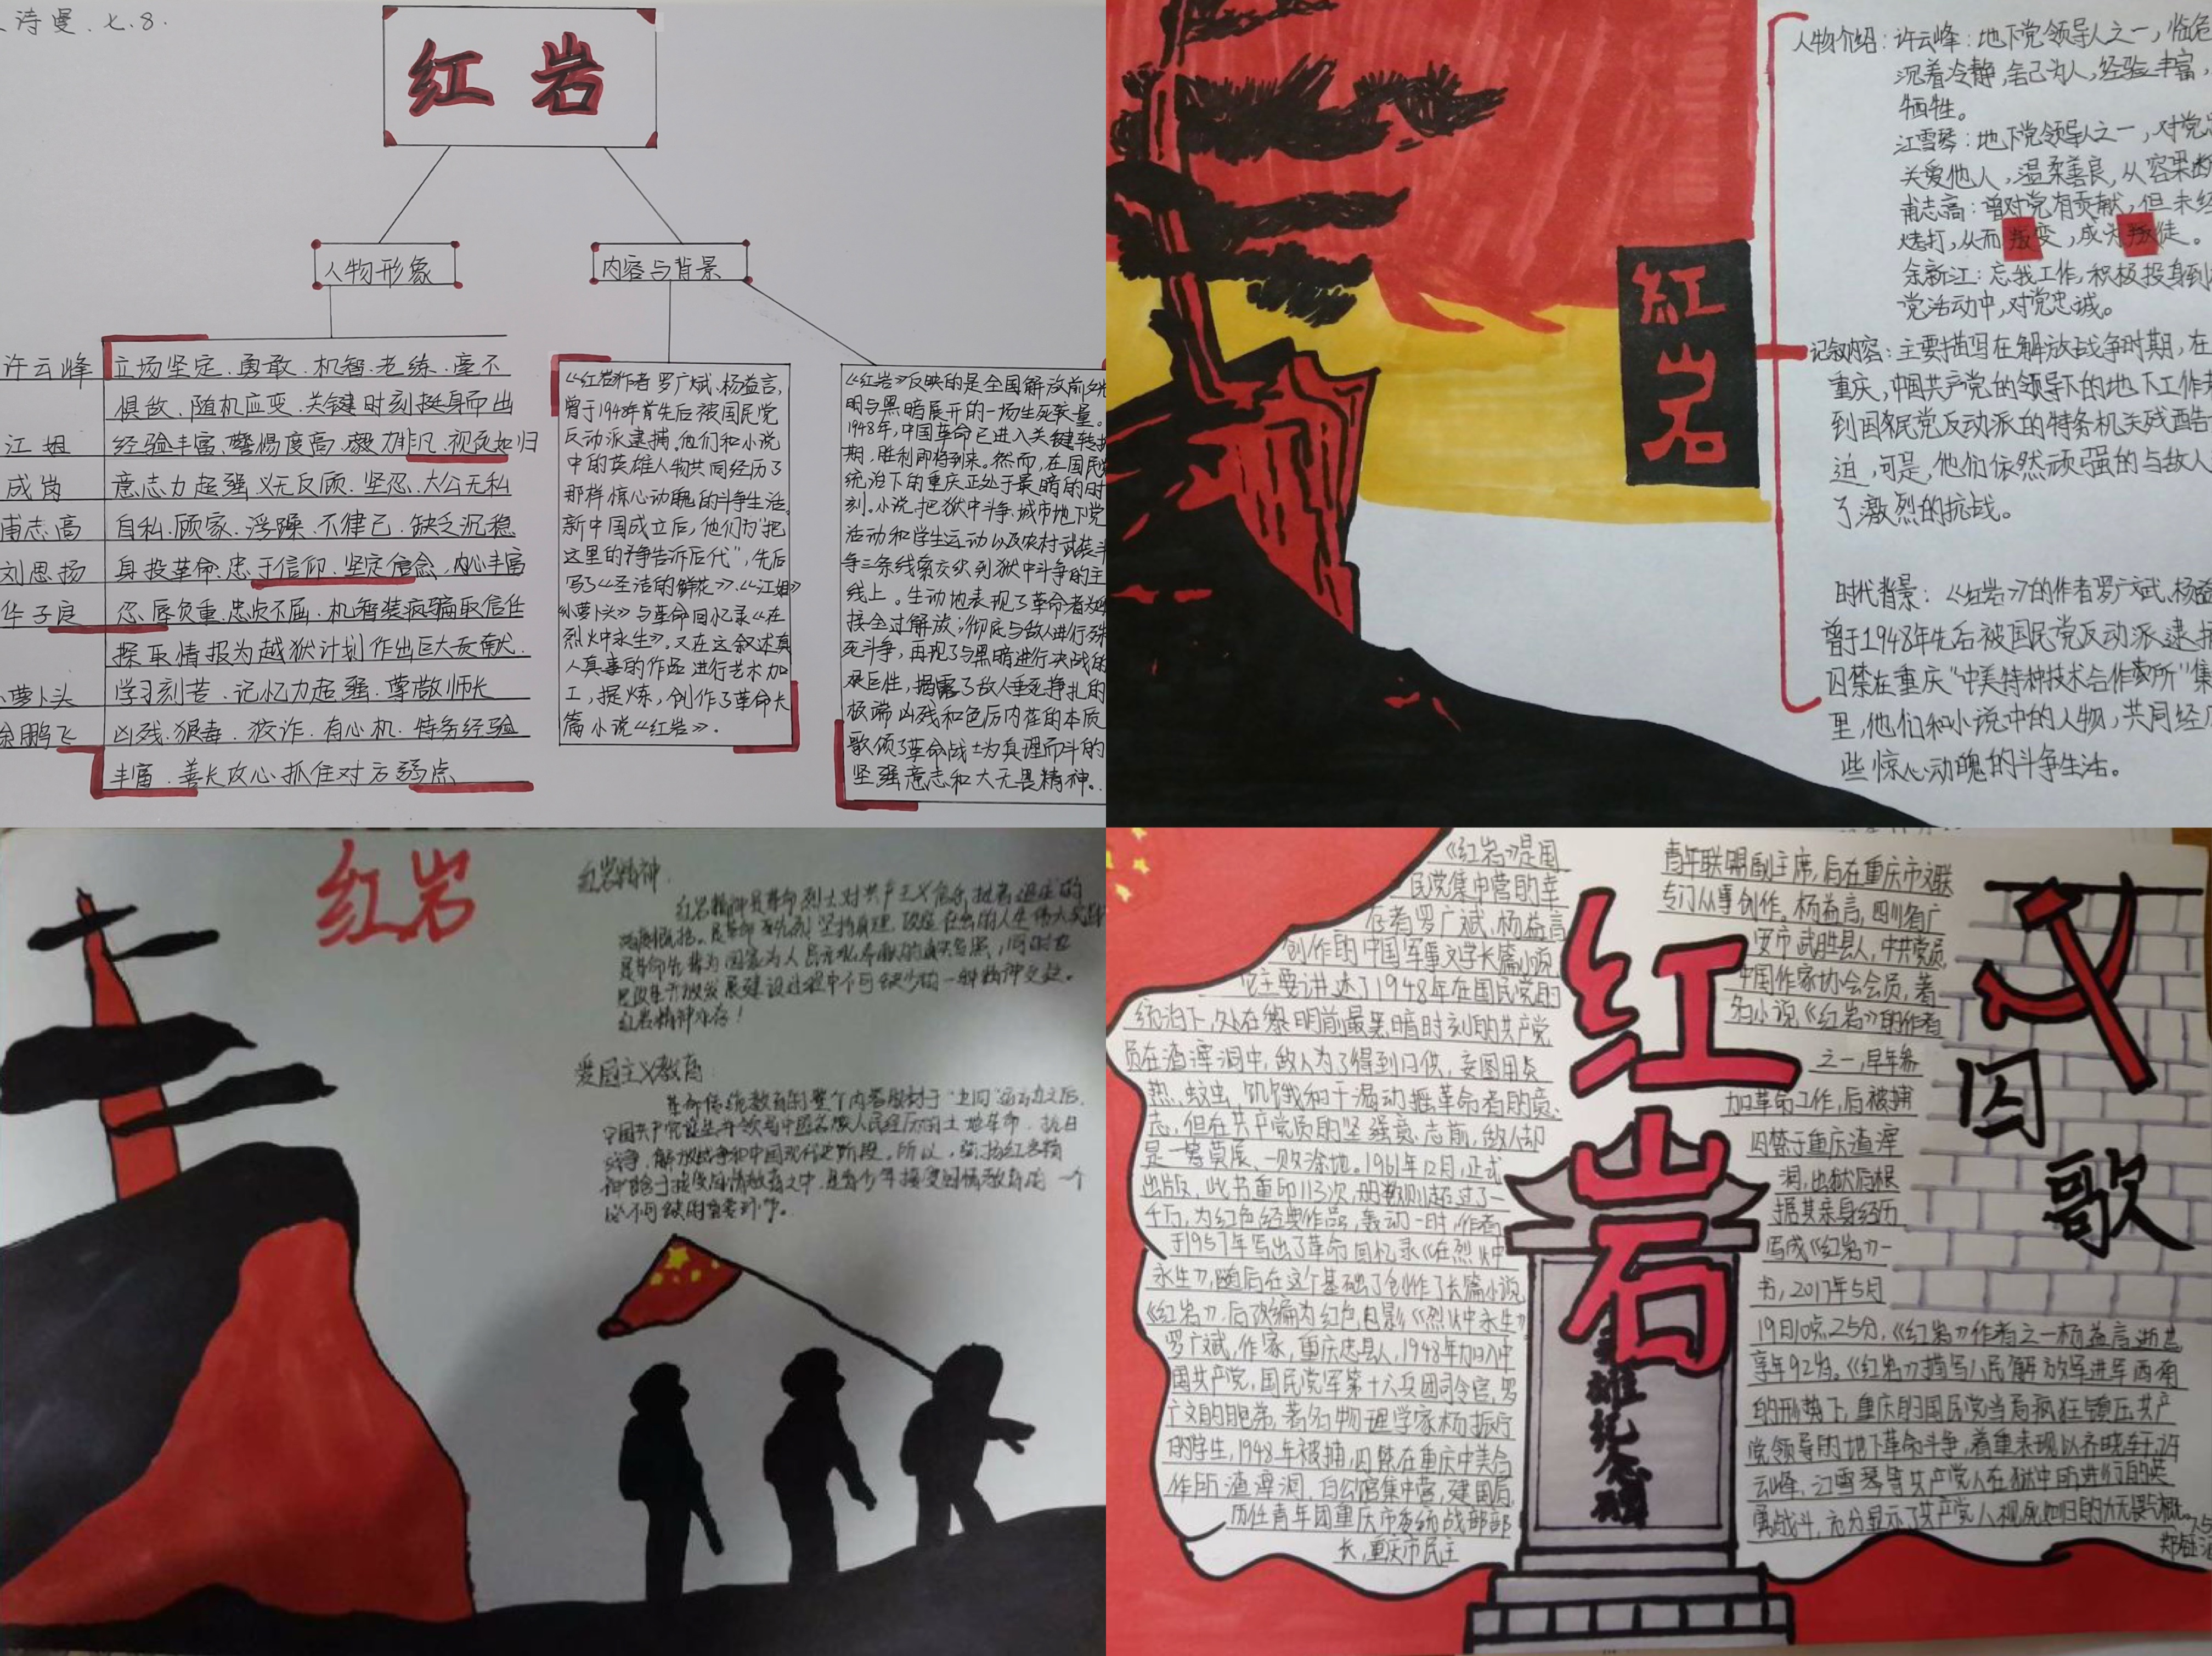 诗曼.七.8.
红岩
人物形象
内容与背景
许云峰
立场坚定.勇敢.机智.老练.毫不
惧敌.随机应变.关键时刻挺身而出
江姐
经验丰富.警惕度高.毅力非凡.视死如归
成岗
意志力超强.义无反顾.坚忍.大公无私
甫志高
自私.顾家.浮躁.不律己.缺乏沉稳
刘思扬
身投革命.忠于信仰.坚定信念.内心丰富
华子良
忍辱负重.忠贞不屈.机智装疯骗取信任
探取情报为越狱计划作出巨大贡献.
萝卜头
学习刻苦.记忆力超强.尊敬师长
余鹏飞
凶残.狠毒.狡诈.有心机.特务经验
丰富.善长攻心.抓住对方弱点
《红岩》作者罗广斌、杨益言,
曾于1948年前先后被国民党
反动派逮捕。他们和小说
中的英雄人物共同经历了
那样惊心动魄的斗争生活。
新中国成立后,他们为“把
这里的斗争告诉后代”,先后
写了《圣洁的鲜花》.《江姐》
《小萝卜头》与革命回忆录《在
烈火中永生》。又在这叙述真
人真事的作品进行艺术加
工,提炼,创作了革命长
篇小说《红岩》。
《红岩》反映的是全国解放前夕光
明与黑暗展开的一场生死较量。
1948年,中国革命已进入关键转折
期,胜利即将到来。然而,在国民党
统治下的重庆正处于最暗的时
刻。小说把狱中斗争、城市地下党
活动和学生运动以及农村武装斗
争三条线索交织到狱中斗争的主
线上。生动地表现了革命者为迎
接全过解放,彻底与敌人进行殊
死斗争,再现了与黑暗进行决战的
艰巨性,揭露了敌人垂死挣扎的
极端凶残和色厉内荏的本质
歌颂了革命战士为真理而斗的
坚强意志和大无畏精神。
紅岩
人物介绍:许云峰:地下党领导人之一,临危
沉着冷静,舍己为人,经验丰富,
牺牲。
江雪琴:地下党领导人之一,对党忠
关爱他人,温柔善良,从容果断
甫志高:曾对党有贡献,但未经
烤打,从而叛变,成为叛徒。
余新江:忘我工作,积极投身到
党活动中,对党忠诚。
记叙内容:主要描写在解放战争时期,在
重庆,中国共产党的领导下的地下工作者
到国民党反动派的特务机关残酷
迫,可是,他们依然顽强的与敌人
了激烈的抗战。
时代背景:《红岩》的作者罗广斌、杨益
曾于1948年先后被国民党反动派逮捕
囚禁在重庆“中美特种技术合作所”集
里,他们和小说中的人物,共同经历
些惊心动魄的斗争生活。
红岩
红岩精神:
红岩精神是革命烈士对共产主义信念执着追求的
是革命先辈为国家为人民无私奉献的真实写照,同时也
是改革开放发展建设过程中不可缺少的一种精神支柱。
红岩精神永存!
爱国主义教育:
革命传统教育的整个内容取材于“五四”运动之后,
中国共产党诞生并领导中国各族人民经历的土地革命、抗日
战争、解放战争和中国现代史阶段。所以,弘扬红岩精
神融于爱国情教育之中,是青少年接受国情教育的一个
必不可缺的重要环节。
《红岩》是国
民党集中营的幸
存者罗广斌、杨益言
创作的中国军事文学长篇小说,
它主要讲述了1948年在国民党的
统治下,处在黎明前最黑暗时刻的共产党
员在渣滓洞中,敌人为了得到口供,妄图用炎
热、蚊虫、饥饿和干渴动摇革命者的意
志,但在共产党员的坚强意志前,敌人却
是一筹莫展、一败涂地。1961年12月,正式
出版,此书重印113次,册数则超过了一
千万,为红色经典作品,轰动一时,作者
于1957年写出了革命回忆录《在烈火中
永生》,随后在这个基础了创作了长篇小说
《红岩》,后改编为红色电影《烈火中永生》
罗广斌,作家,重庆忠县人,1948年加入中
国共产党,国民党军第十六兵团司令官,罗
广文的胞弟,著名物理学家杨振宁
的学生,1948年被捕,囚禁在重庆中美合
作所渣滓洞、白公馆集中营,建国后,
历任青年团重庆市委统战部部
长,重庆市民主
红岩
雄纪念碑
青年联盟副主席,后在重庆市文联
专门从事创作。杨益言,四川省广
安市武胜县人,中共党员,
中国作家协会会员,著
名小说《红岩》的作者
之一,早年参
加革命工作,后被捕
囚禁于重庆渣滓
洞,出狱后根
据其亲身经历
写成《红岩》一
书,2017年5月
19日10点25分,《红岩》作者之一杨益言逝世
享年92岁。《红岩》描写人民解放军进军西南
的形势下,重庆的国民党当局疯狂镇压共产
党领导的地下革命斗争,着重表现以齐晓轩、许
云峰、江雪琴等共产党人在狱中所进行的英
勇战斗,充分显示了共产党人视死如归的大无畏气概。
囚歌